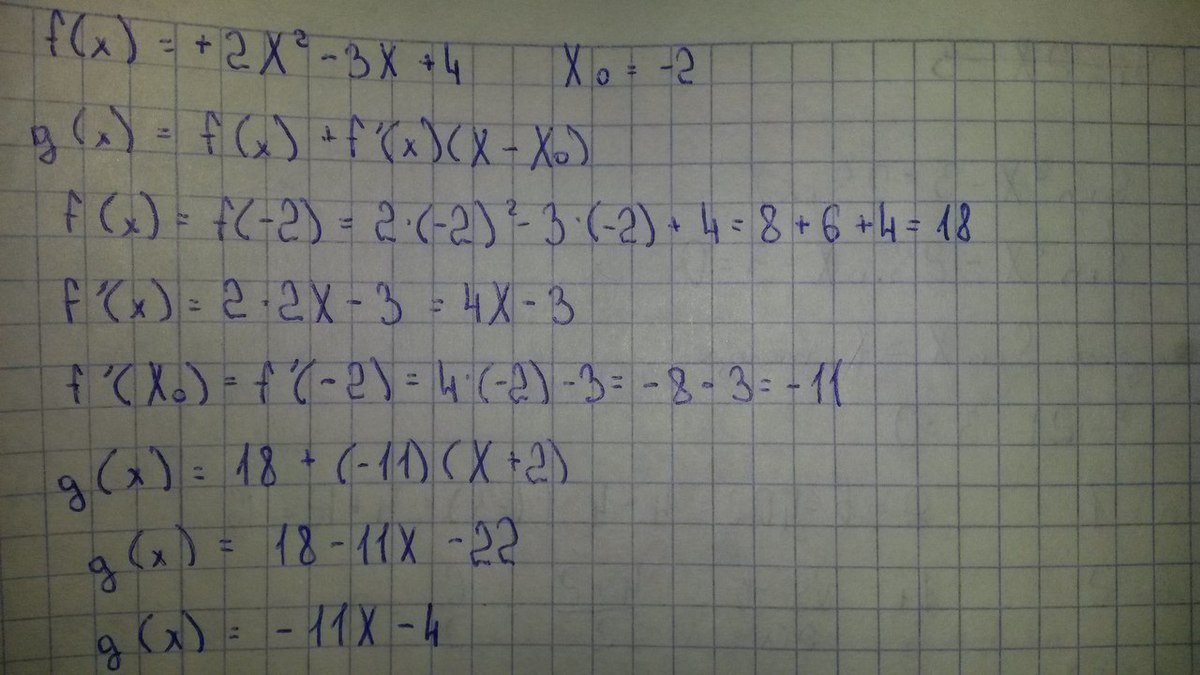 f(x) = +2x² - 3x + 4 x₀ = -2
g(x) = f(x) + f'(x)(x - x₀)
f(x) = f(-2) = 2·(-2)² - 3·(-2) + 4 = 8 + 6 + 4 = 18
f'(x) = 2·2x - 3 = 4x - 3
f'(x₀) = f'(-2) = 4·(-2) - 3 = -8 - 3 = -11
g(x) = 18 + (-11)(x + 2)
g(x) = 18 - 11x - 22
g(x) = -11x - 4